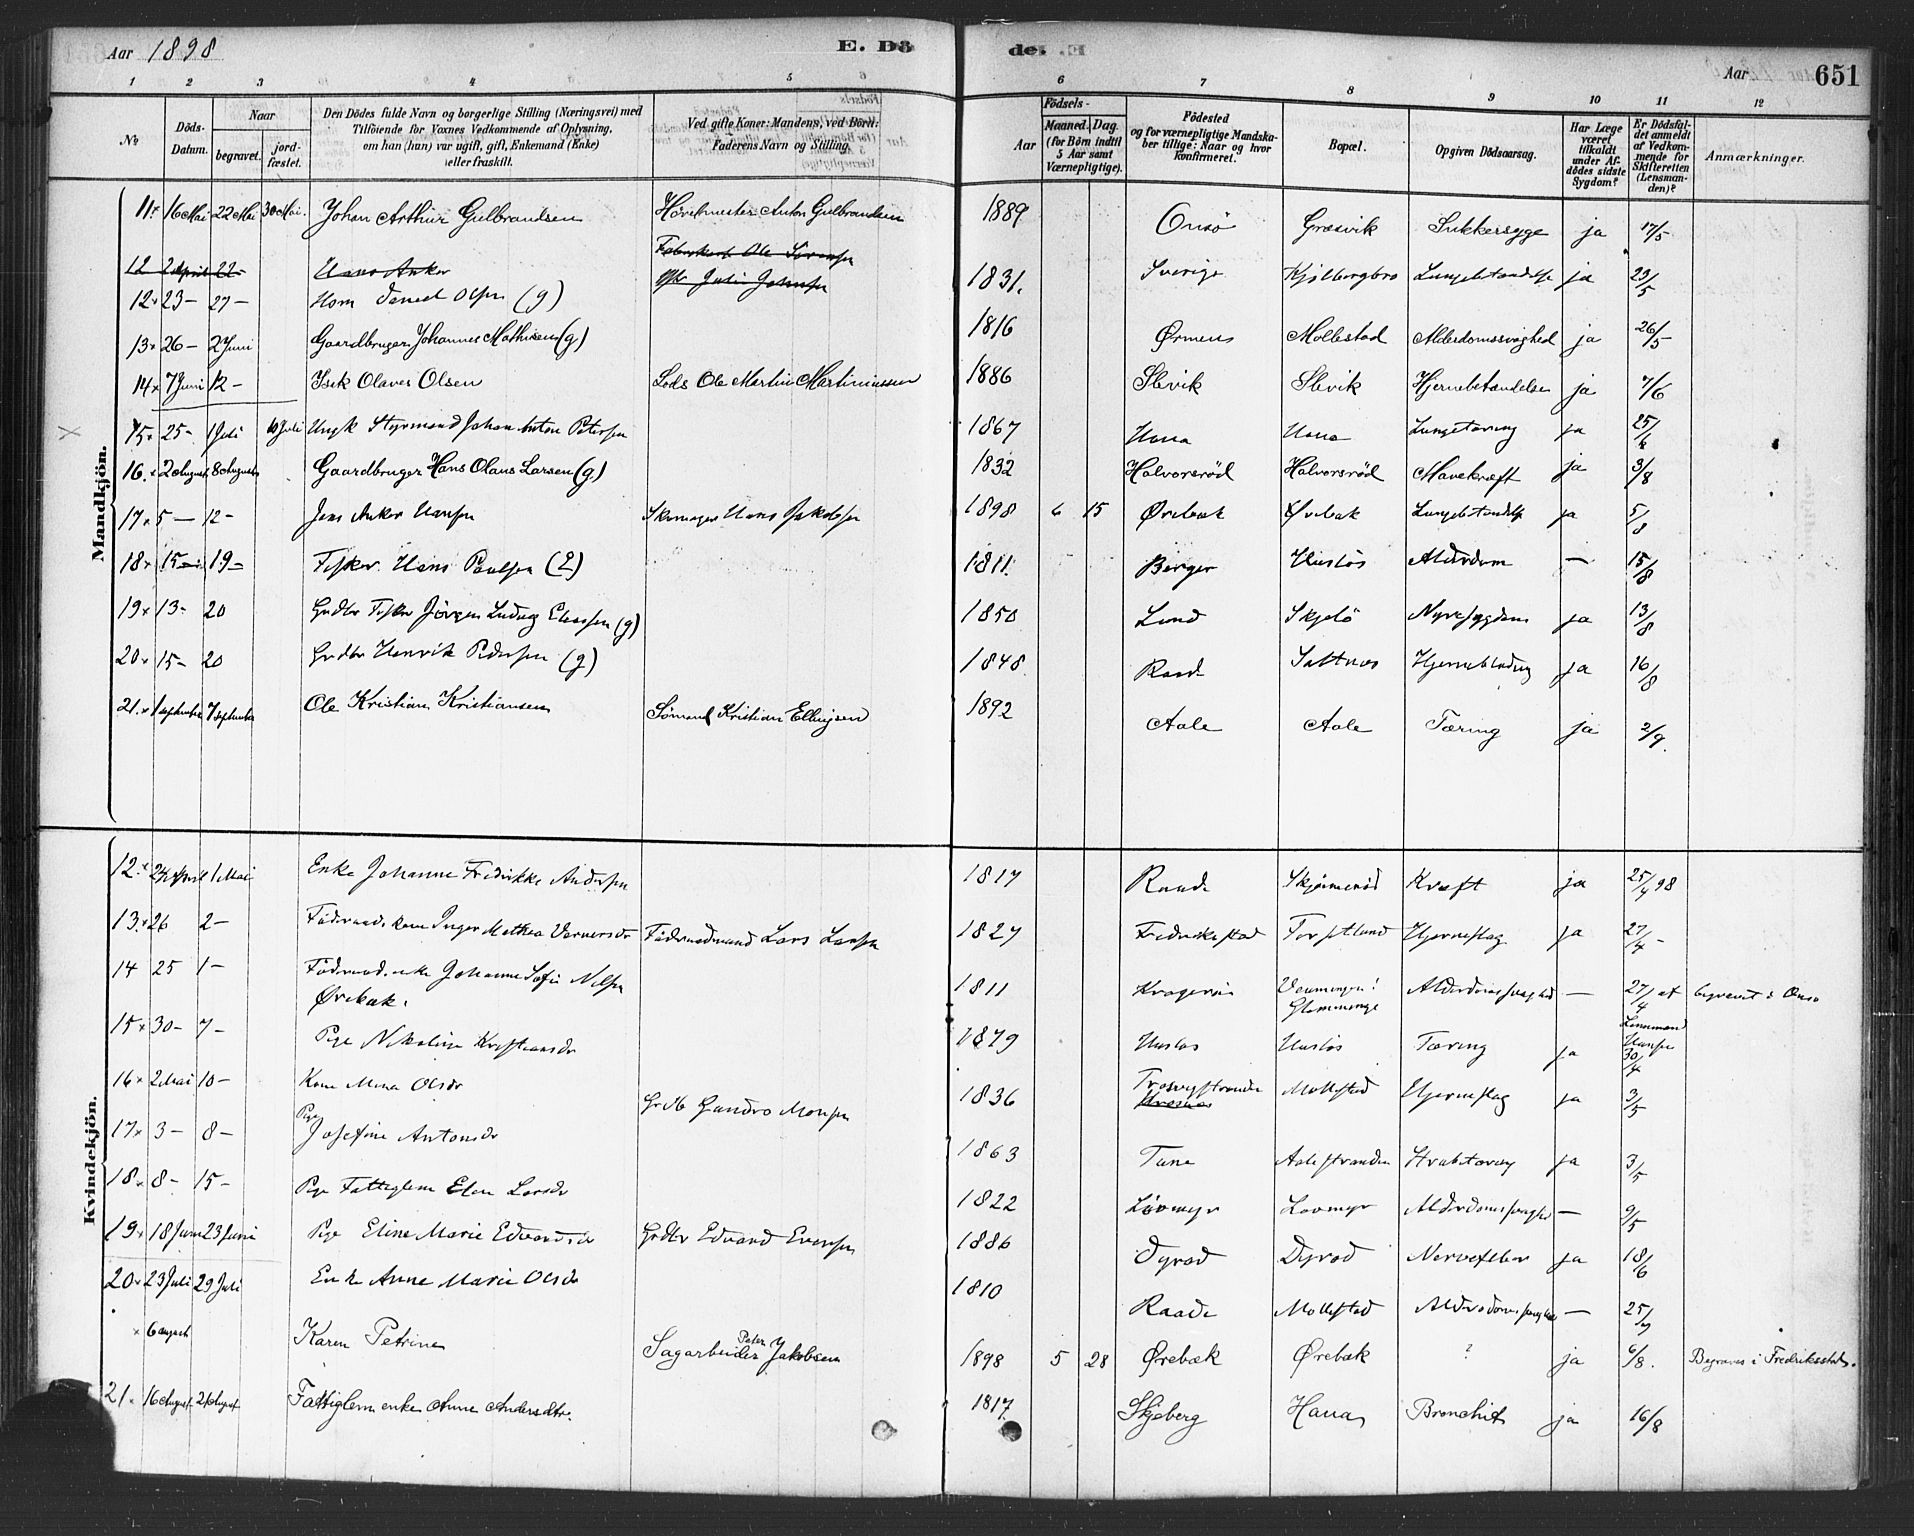 Aar 1898 E. Dö de. E Aar 651
1 2 3 4 5 6 7 8 9 10 11 12
No Döds-Datum. Naar begravet. jord-fæstet. Den Dödes fulde Navn og borgerlige Stilling (Næringsvei) med Tilföiende for Voxnes Vedkommende af Oplysning, om han (hun) var ugift, gift, Enkemand (Enke) eller fraskilt. Ved gifte Koner: Mandens, ved Börn: Faderens Navn og Stilling. Födsels- Aar Maaned. Dag. (for Börn indtil 5 Aar samt Værnepligtige). Födested og for værnepligtige Mandskaber tillige: Naar og hvor konfirmeret. Bopæl. Opgiven Dödsaarsag. Har Læge været tilkaldt under Afdödes sidste Sygdom? Er Dödsfaldet anmeldt af Vedkommende for Skifteretten (Lensmanden)? Anmærkninger.
Mandkjön.
11 16 Mai 22 Mai 30 Mai. Johan Arthur Gulbrandsen Anton Gulbrandsen 1889 Onsö Græsvik Sukkersyge ja 17/5
12 2 April 22 Hans Anker Ole Sörensen Julie Jensen
12 23 – 27 – Daniel Olsen (g) 1831. Sverige Kjölbergbro Lungebetændelse ja 23/5
13 26 – 2 Juni Gaardbruger Johannes Mathisen (g) 1816 Ørmen Mollestad Alderdomssvaghed ja 26/5
14 7 Juni 12 – Isak Olaves Olsen Lods Ole Martin Martiniussen 1886 Slevik Slevik Hjernebetændelse ja 7/6
15 25 – 1 Juli 10 Juli Ungk Styrmand Johan Anton Petersen 1867 Hana Hana Lungetæring ja 25/6
16 2 August 8 August Gaardbruger Hans Olaus Larsen (g) 1832 Halvorsröd Halvorsröd Mavekræft ja 3/8
17 5 – 12 – Jens Anker Hansen Skomager Hans Jakobsen 1898 6 15 Ørebæk Ørebæk Lungebetændelse ja 5/8
18 15 – 19 – Fisker Hans Paulsen (E) 1811. Berger Huslös Alderdom — 15/8
19 13 – 20 Grdbr Fisker Jörgen Ludvig Eliassen (g) 1850 Lund Skjelö Nyresygdom ja 13/8
20 15 – 20 Grdbr Henrik Pedersen (g) 1848 Raade Saltnes Hjerneblödning ja 16/8
21 1 September 7 September Ole Kristian Kristiansen Sömand Kristian Ellingsen 1892 Aale Aale Tæring ja 2/9
Kvindekjön.
12 24 April 1 Mai Enke Johanne Fredrikke Andersen 1817 Raade Skjörneröd Kræft ja 25/4 98
13 26 2 – Föderaadskone Inger Mathea Vernersdr Föderaadsmand Lars Larsen 1827 Fredrikstad Torsetlund Hjerneslag ja 27/4 –
14 25 1 – Föderaadsenke Johanne Sofie Nilsen
Ørebæk. 1811 Kragerö Glemminge Alderdomssvaghed — 27/4 at Lensmand Hansen begravet i Onsö
15 30 – 7 – Pige Nikoline Kristiansdr 1879 Huslös Huslös Tæring ja 30/4
16 2 Mai 10 – Kone Mina Olsdr Grdb Gundro Monsen 1836 Trosvigstranden Mollestad Hjerneslag ja 3/5
17 3 – 8 – Pige Josefine Antonsdr 1863 Tune Aalestranden Strubetæring ja 3/5
18 8 – 15 – Pige Fattiglem Elen Larsdr 1822 Lövmyr Lövmyr Alderdomssvaghed — 9/5
19 18 Juni 23 Juni Pige Eline Marie Edvardsdr Grdbr Edvard Evensen 1886 Dyröd Dyröd Nervefeber ja 18/6
20 23 Juli 29 Juli Enke Anne Marie Olsdr 1810 Raade Mollestad Alderdomssvaghed — 25/7
6 august Karen Petrine Sagarbeider Peter Jakobsen 1898 5 28 Ørebæk Ørebæk ? ja 6/8. Begraves i Fredriksstad.
21. 16 August 21 August Fattiglem enke Anne Andersdtr. 1817 Skjeberg Hana Bronchit ja 16/8